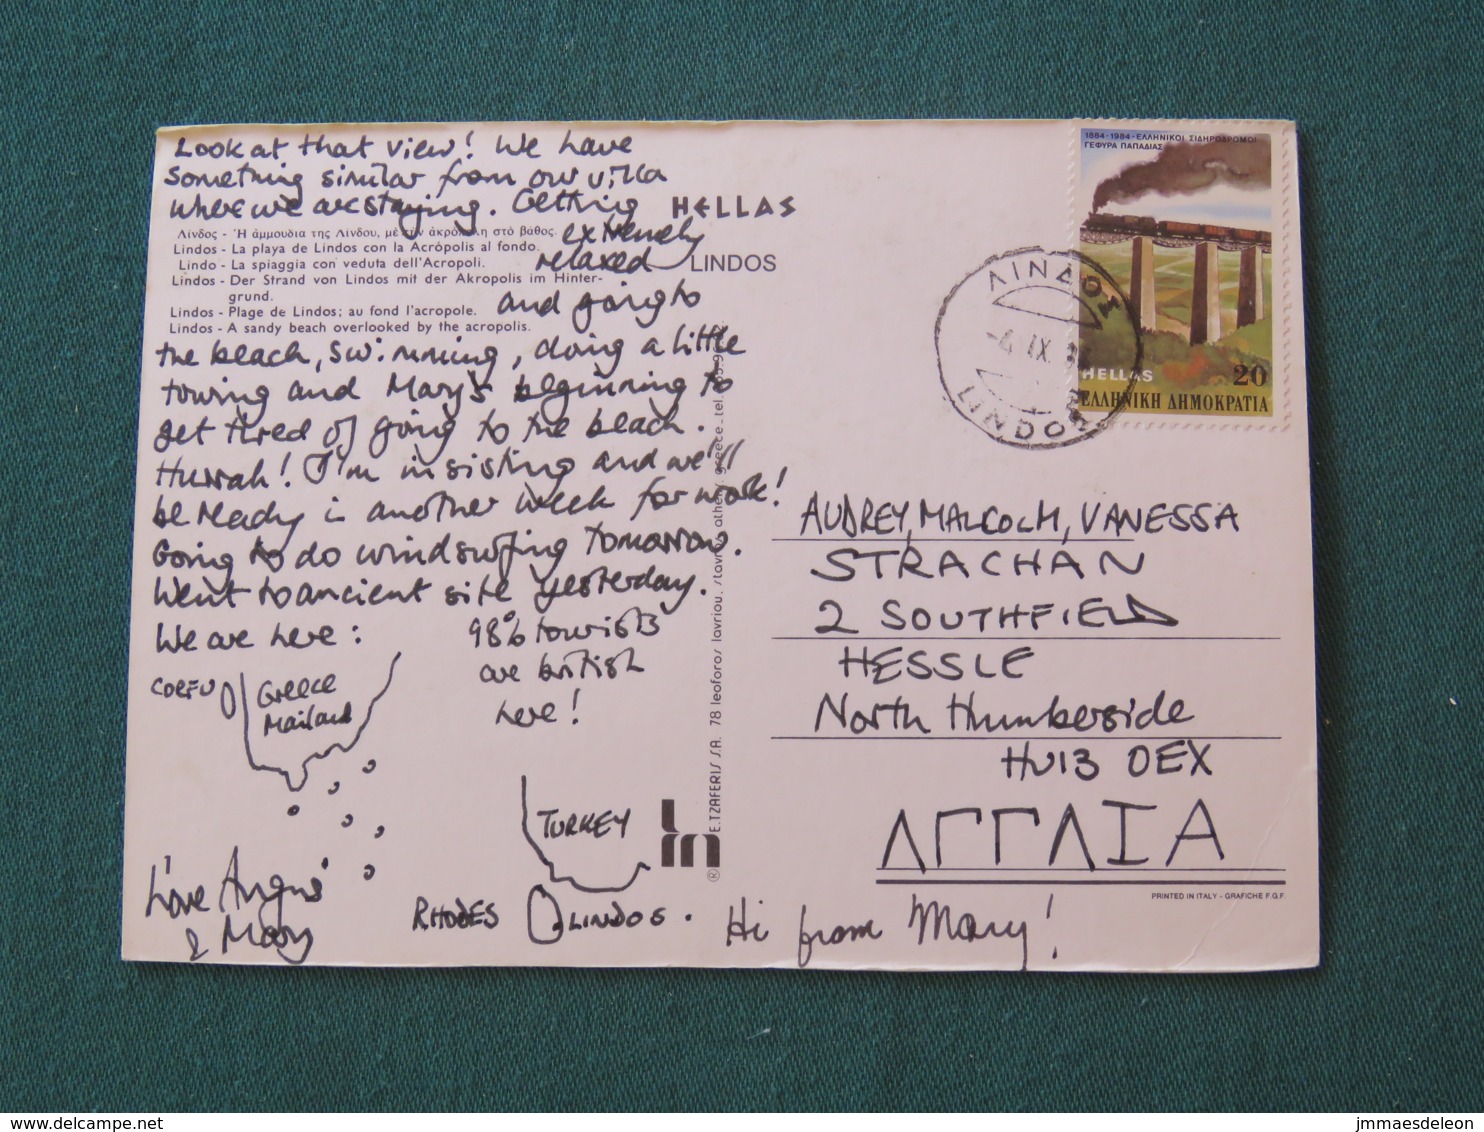 Look at that view! We have
something similar from our villa
where we are staying. Getting
extremely
relaxed
and going to
the beach, swimming, doing a little
touring and Mary's beginning to
get tired of going to the beach.
Hurrah! I'm insisting and we'll
be ready in another week for work!
Going to do windsurfing tomorrow.
Went to ancient site yesterday.
We are here:
98% tourists
are british
here!
CORFU
Greece
Mainland
TURKEY
RHODES
LINDOS.
Love Angus
& Mary
Hi from Mary!
HELLAS
LINDOS
Λίνδος - Ἡ ἀμμουδια της Λίνδου, μέ τήν ἀκρόπολη στό βάθος.
Lindos - La playa de Lindos con la Acrópolis al fondo.
Lindo - La spiaggia con veduta dell'Acropoli.
Lindos - Der Strand von Lindos mit der Akropolis im Hinter-
grund.
Lindos - Plage de Lindos; au fond l'acropole.
Lindos - A sandy beach overlooked by the acropolis.
® E.TZAFERIS S.A. 78 leoforos lavriou, stavros athens greece-tel.
1884-1984-ΕΛΛΗΝΙΚΟΙ ΣΙΔΗΡΟΔΡΟΜΟΙ
ΓΕΦΥΡΑ ΠΑΠΑΔΙΑΣ
HELLAS 20
ΕΛΛΗΝΙΚΗ ΔΗΜΟΚΡΑΤΙΑ
ΛΙΝΔΟΣ
-4 IX
LINDOS
AUDREY, MALCOLM, VANESSA
STRACHAN
2 SOUTHFIELD
HESSLE
North Humberside
HU13 0EX
ΑΓΓΛΙΑ
PRINTED IN ITALY - GRAFICHE F.G.F.
delcampe.net
jmmaesdeleon